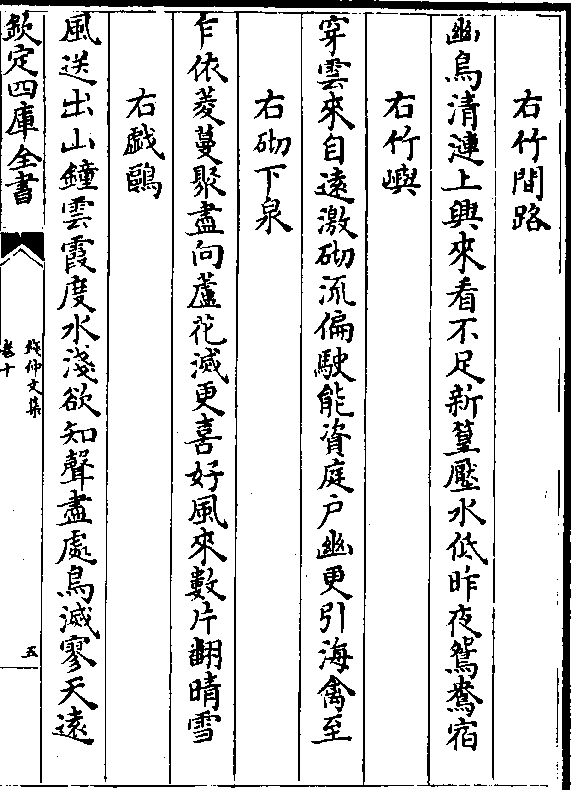 右竹間路
幽鳥清漣上興來看不足新篁壓水低昨夜鴛鴦宿
右竹嶼
穿雲來自遠激砌流偏駛能資庭户幽更引海禽至
右砌下泉
乍依菱蔓聚盡向蘆花滅更喜好風來數片翻晴雪
右戯鷗
風送出山鐘雲霞度水淺欲知聲盡處鳥滅寥天遠
欽定四庫全書
錢仲文集
卷十
五